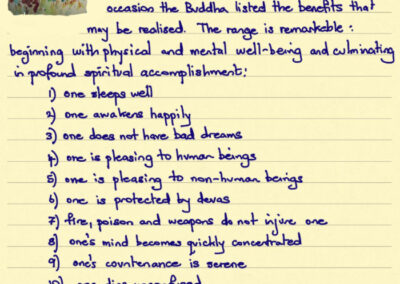 occasion the Buddha listed the benefits that
may be realised. The range is remarkable:
beginning with physical and mental well-being and culminating
in profound spiritual accomplishment:
1) one sleeps well
2) one awakens happily
3) one does not have bad dreams
4) one is pleasing to human beings
5) one is pleasing to non-human beings
6) one is protected by devas
7) fire, poison and weapons do not injure one
8) one's mind becomes quickly concentrated
9) one's countenance is serene
10) one dies